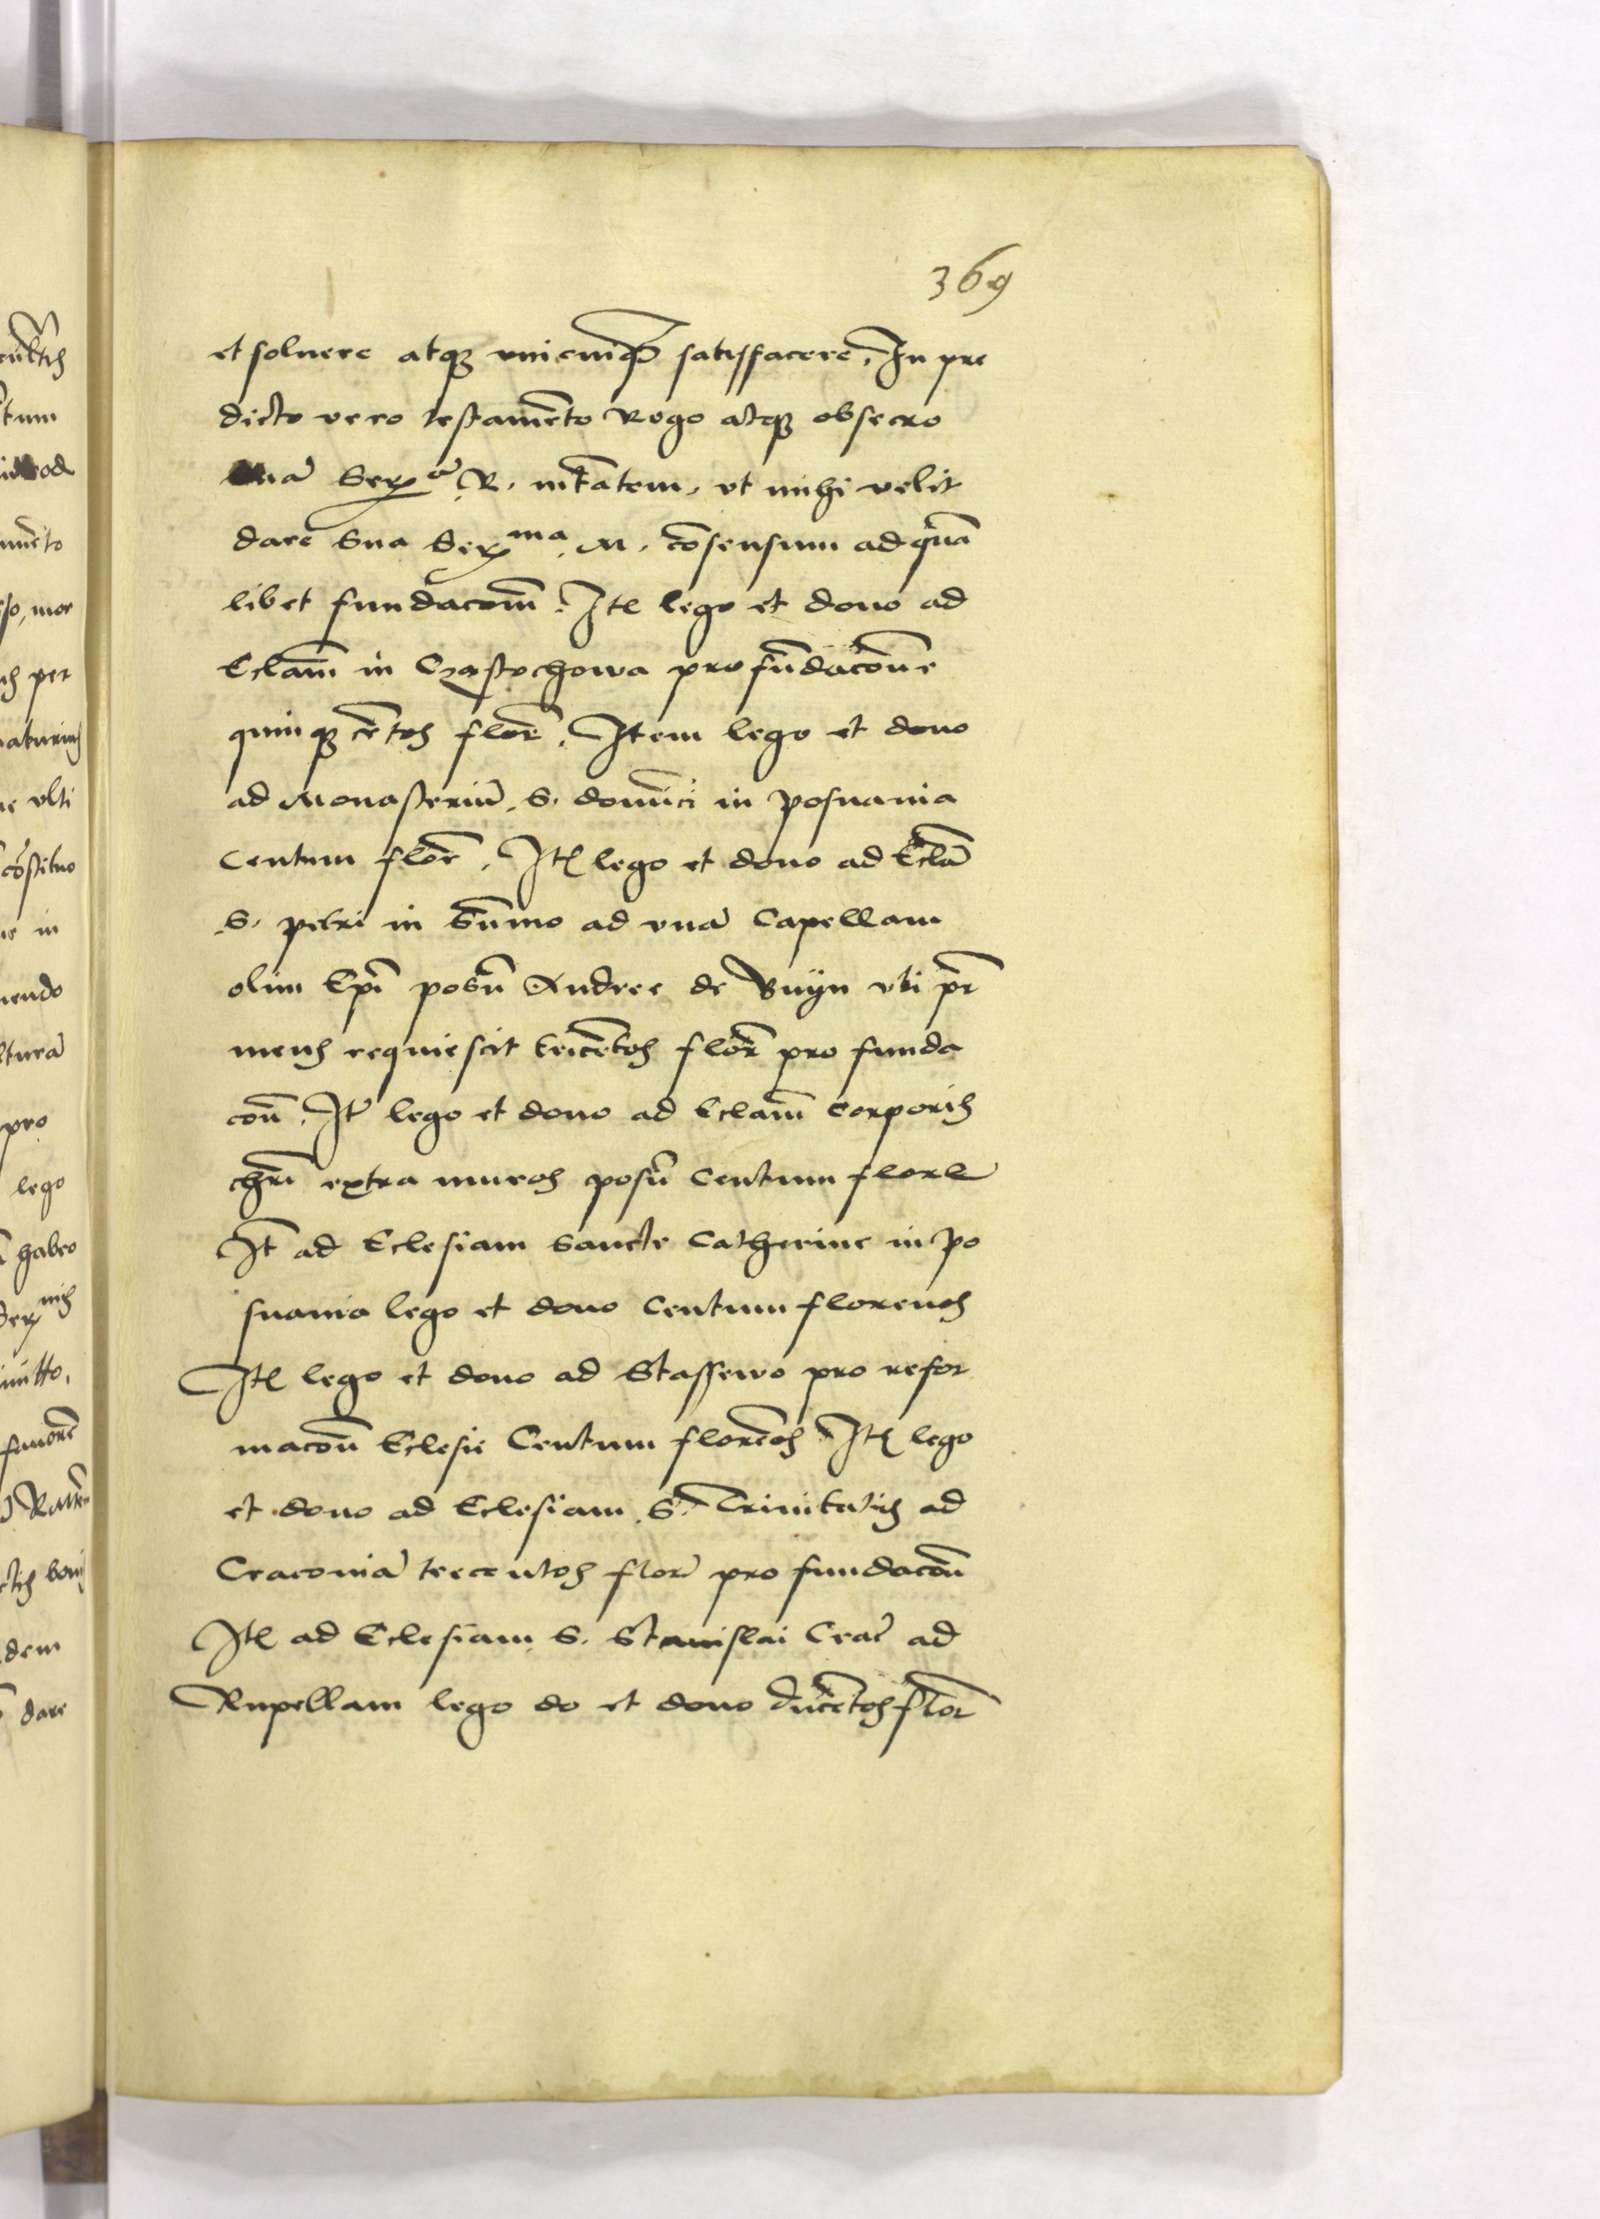 369
et soluere atqꝫ vnicuiqꝫ satisfacere, In pre
dicto vero testamẽto Rogo atqꝫ obsecro
Suã Serᵃ̃. R. mtãtem, vt mihi velit
dare Sua Serᵐᵃ. M. cõsensum ad quã
libet fundacom̃. Itẽ lego et dono ad
Eclam̃ in Czastochowa pro fũdacõne
quinqꝫ cẽtos flor̃. Item lego et dono
ad Monasteriũ. S. domĩci in posnania
Centum flor̃. Itẽ lego et dono ad Eclã
S. petri in Sũmo ad vnã Capellam
olim Epĩ posñ Andree de Bnyn vbi pr̃
meus requiescit tricẽtos flor̃ pro funda
coñ. It̃ lego et dono ad Eclam̃ Corporis
chrĩ extra muros posñ Centum flore
It̃ ad Eclesiam Sancte Catherine in po
snania lego et dono Centum florenos
Itẽ lego et dono ad Stassewo pro refor
macoñ Eclesie Centum florẽos Itẽ lego
et dono ad Eclesiam. S. Trinitatis ad
Cracouiã trecentos flor̃ pro fundacoñ
Itẽ ad Eclesiam S. Stanislai Crac̃ ad
Rupellam lego do et dono ducẽtos flor̃